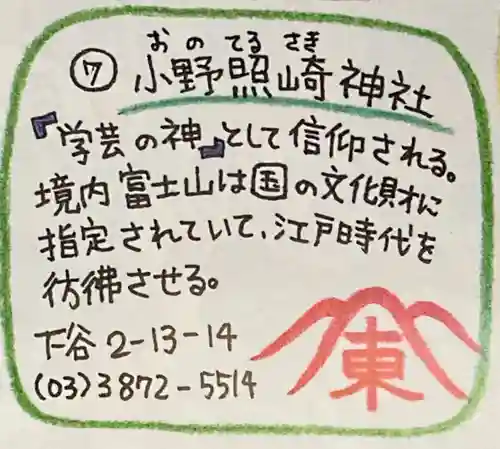 おのてるさき
⑦ 小野照崎神社
『学芸の神』として信仰される。
境内富士山は国の文化財に
指定されていて、江戸時代を
彷彿させる。
下谷2-13-14
(03)3872-5514
東